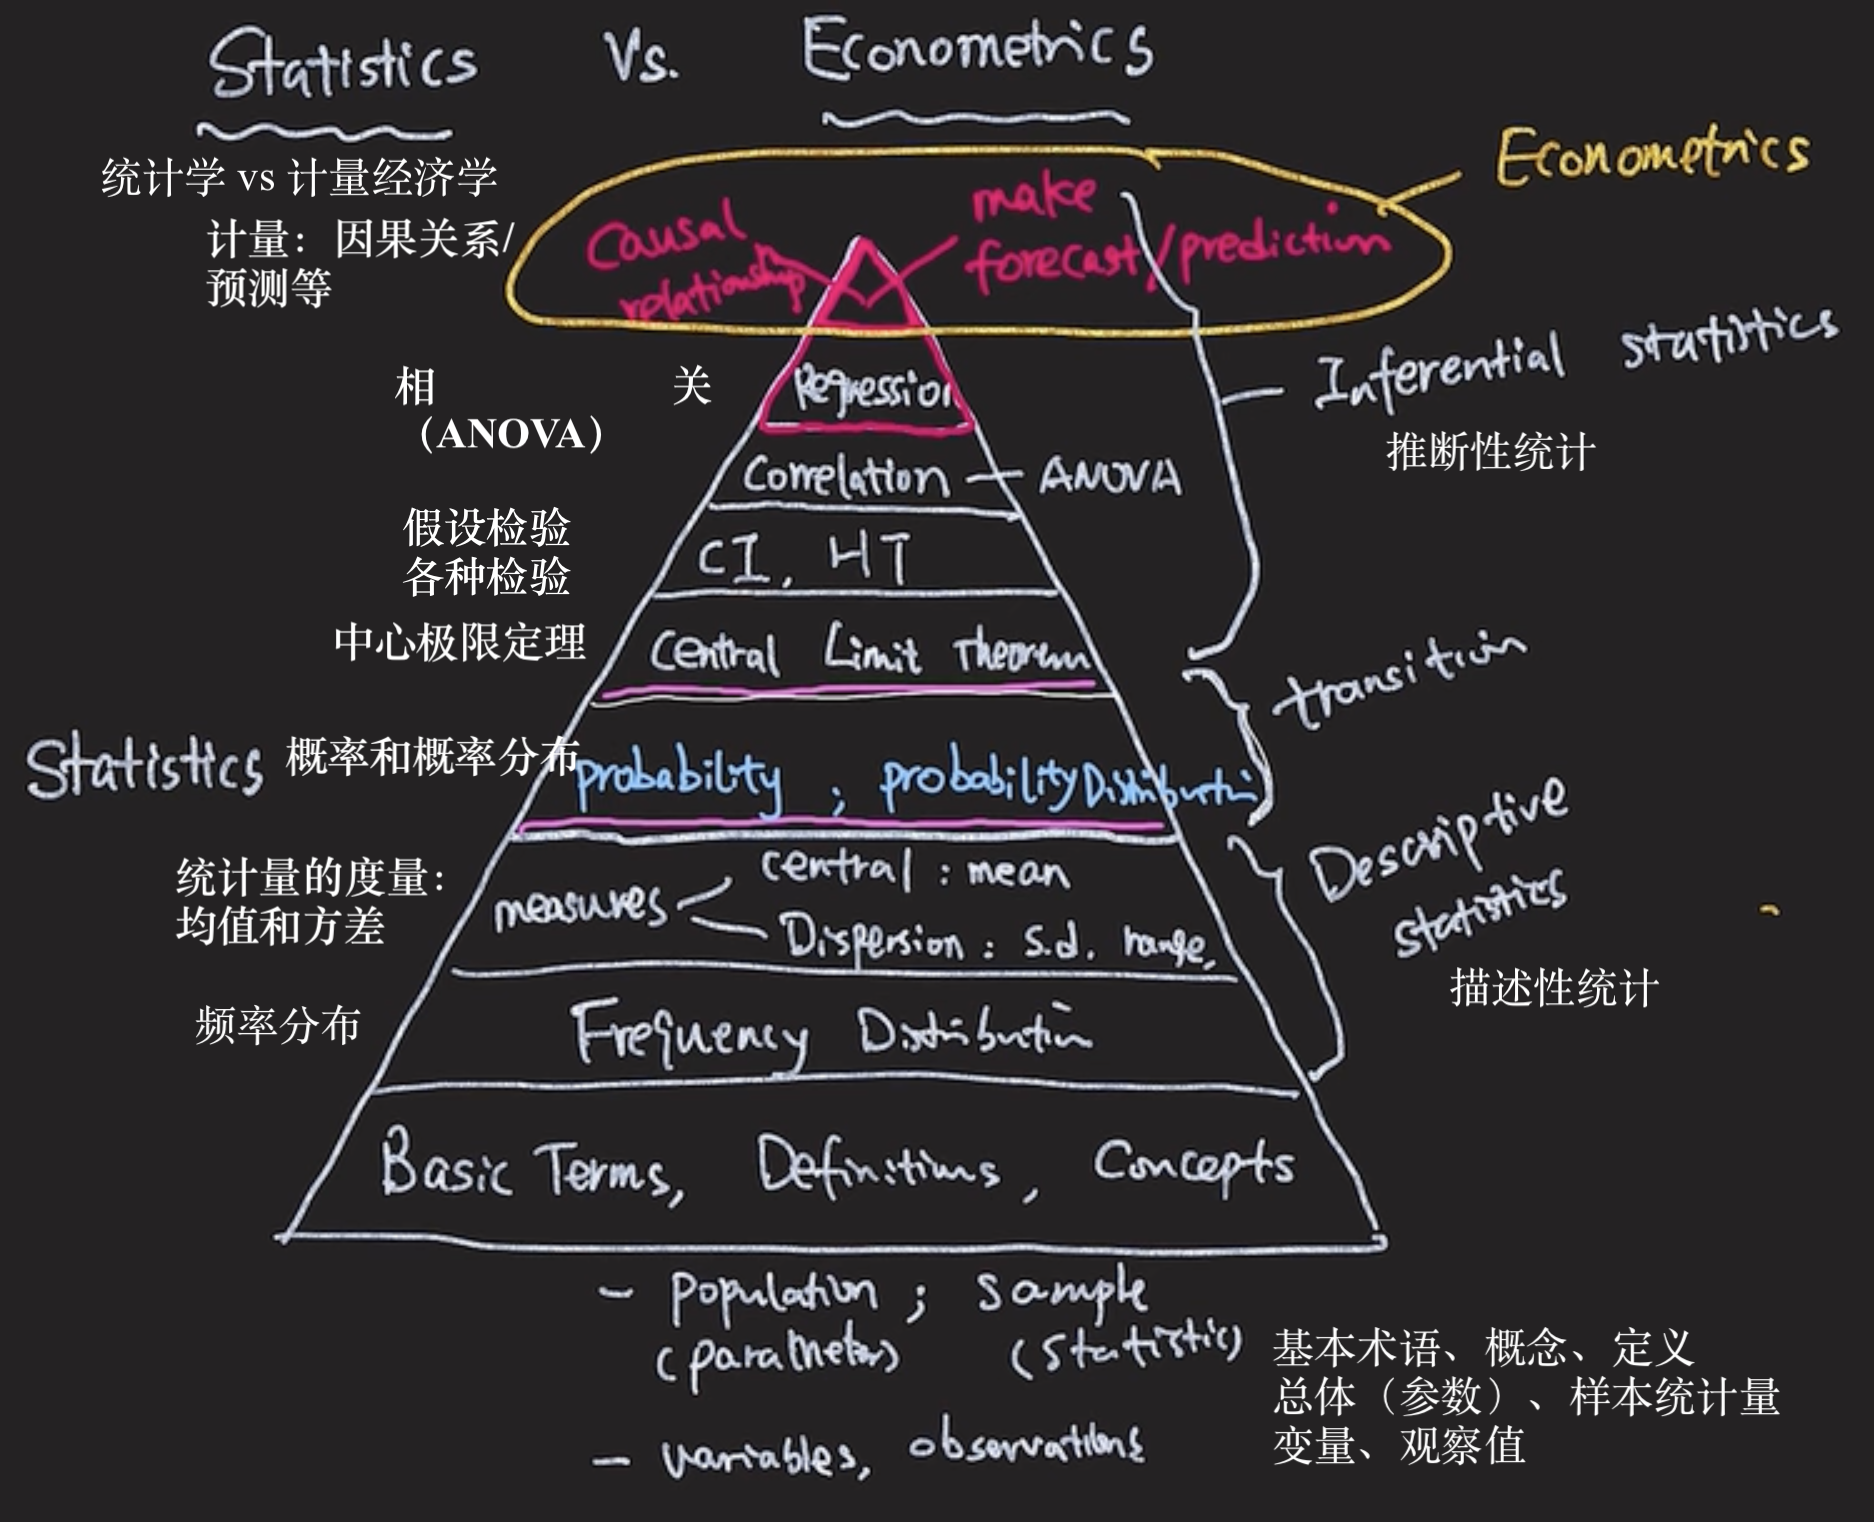 Statistics Vs. Econometrics
统计学 vs 计量经济学
计量：因果关系/
预测等
Econometrics
causal
relationship
make
forecast/prediction
Inferential statistics
推断性统计
相 关
（ANOVA）
Regression
Correlation — ANOVA
假设检验
各种检验
CI, HT
中心极限定理
Central Limit Theorem
transition
Statistics
概率和概率分布
probability ; probability Distribution
统计量的度量：
均值和方差
measures
central : mean
Dispersion : s.d. range,
Descriptive
statistics
描述性统计
频率分布
Frequency Distribution
Basic Terms, Definitions, Concepts
- population ; sample
(parameter) (statistic)
- variables, observations
基本术语、概念、定义
总体（参数）、样本统计量
变量、观察值